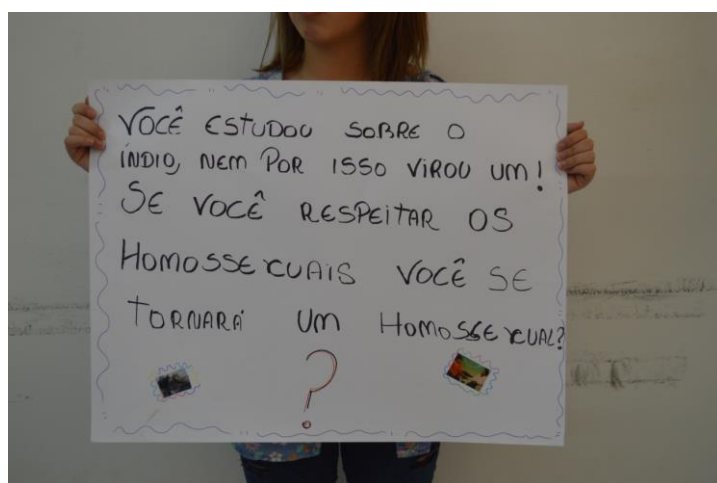 VOCÊ ESTUDOU SOBRE O
ÍNDIO, NEM POR ISSO VIROU UM!
SE VOCÊ RESPEITAR OS
HOMOSSEXUAIS VOCÊ SE
TORNARÁ UM HOMOSSEXUAL?
?